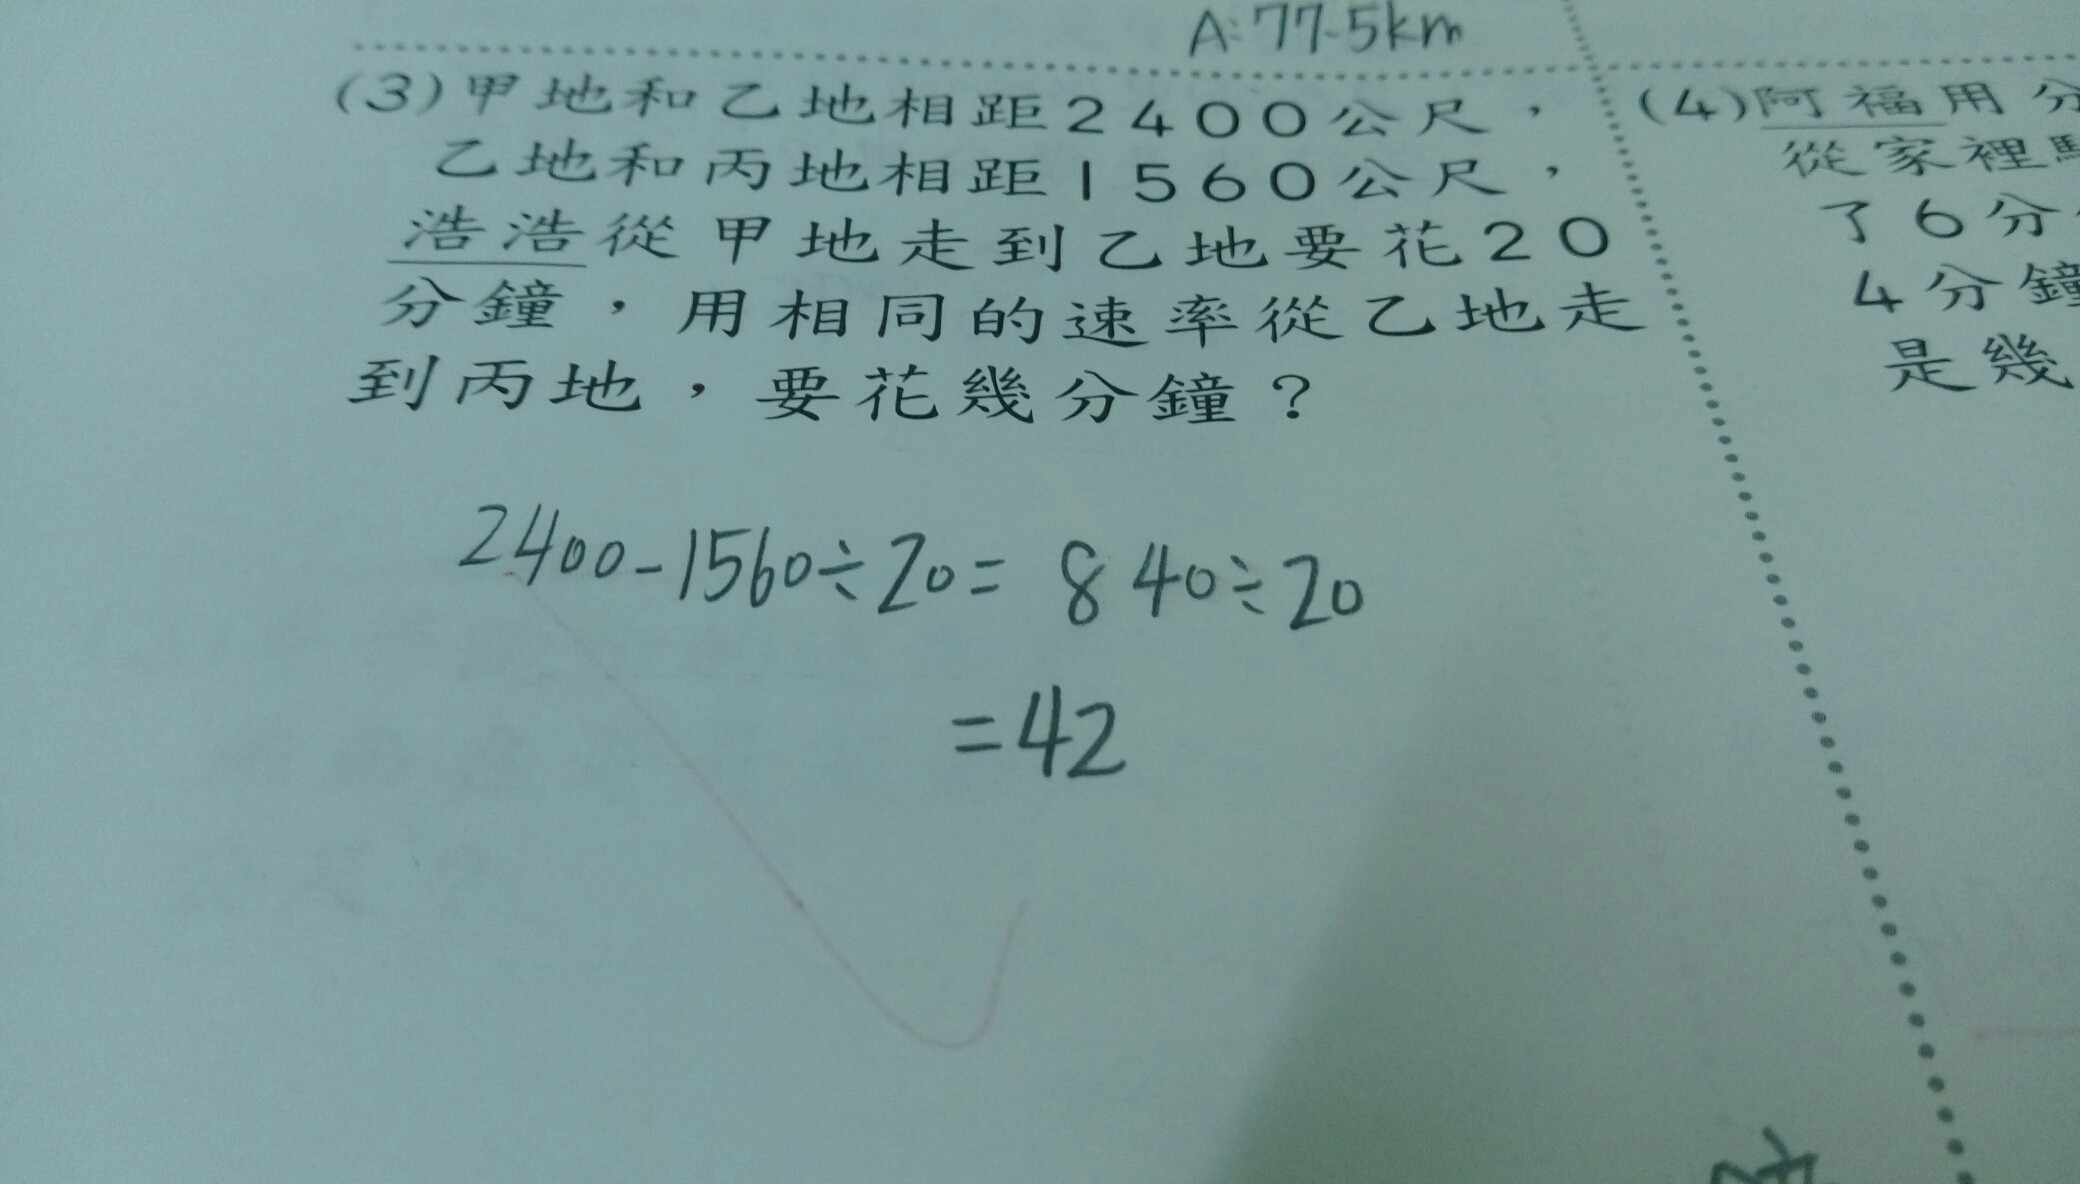 A:77.5km
(3)甲地和乙地相距2400公尺，
乙地和丙地相距1560公尺，
浩浩從甲地走到乙地要花20
分鐘，用相同的速率從乙地走
到丙地，要花幾分鐘？
2400-1560÷20= 840÷20
=42
(4)阿福用分
從家裡
了6分
4分鐘
是幾